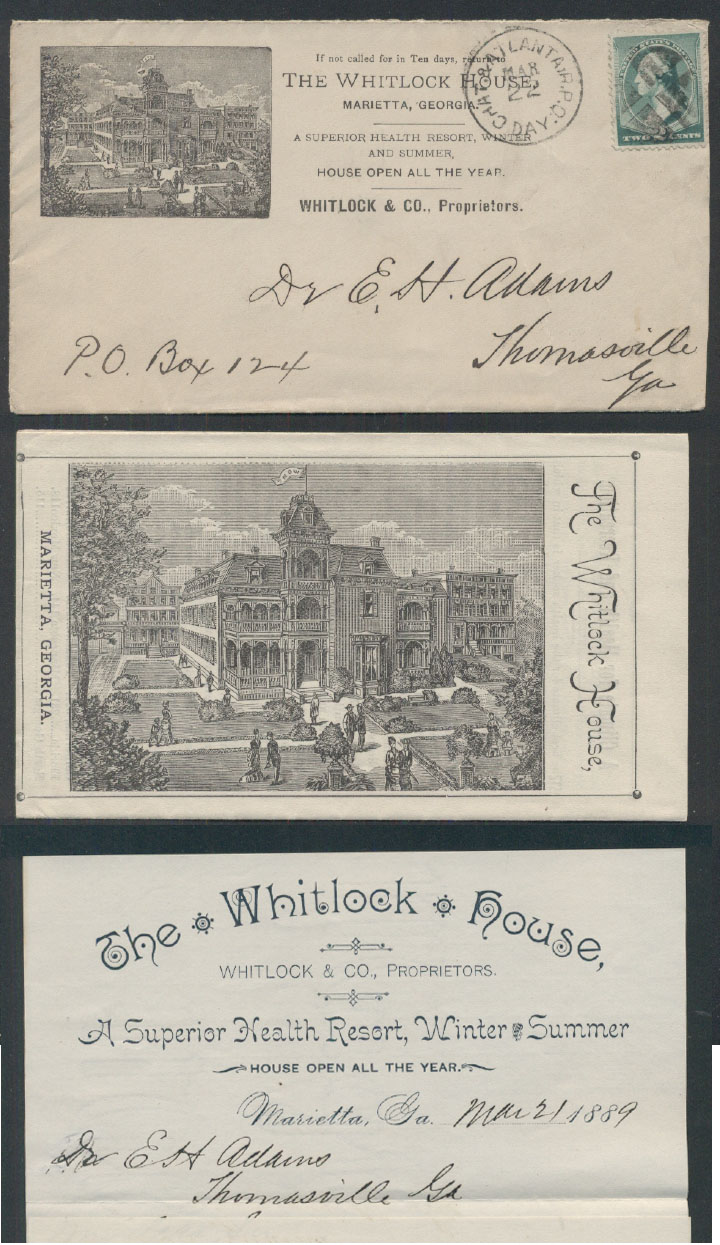 If not called for in Ten days, return to
THE WHITLOCK HOUSE,
MARIETTA, GEORGIA.
A SUPERIOR HEALTH RESORT, WINTER
AND SUMMER,
HOUSE OPEN ALL THE YEAR.
WHITLOCK & CO., Proprietors.
CHAT & ATLANTA R.P.O.
MAR
22
DAY
TWO CENTS
Dr E. H. Adams
P.O. Box 124
Thomasville
Ga
MARIETTA, GEORGIA.
The Whitlock House,
The Whitlock House,
WHITLOCK & CO., PROPRIETORS.
A Superior Health Resort, Winter & Summer
HOUSE OPEN ALL THE YEAR.
Marietta, Ga. Mar 21 1889
Dr E H Adams
Thomasville Ga